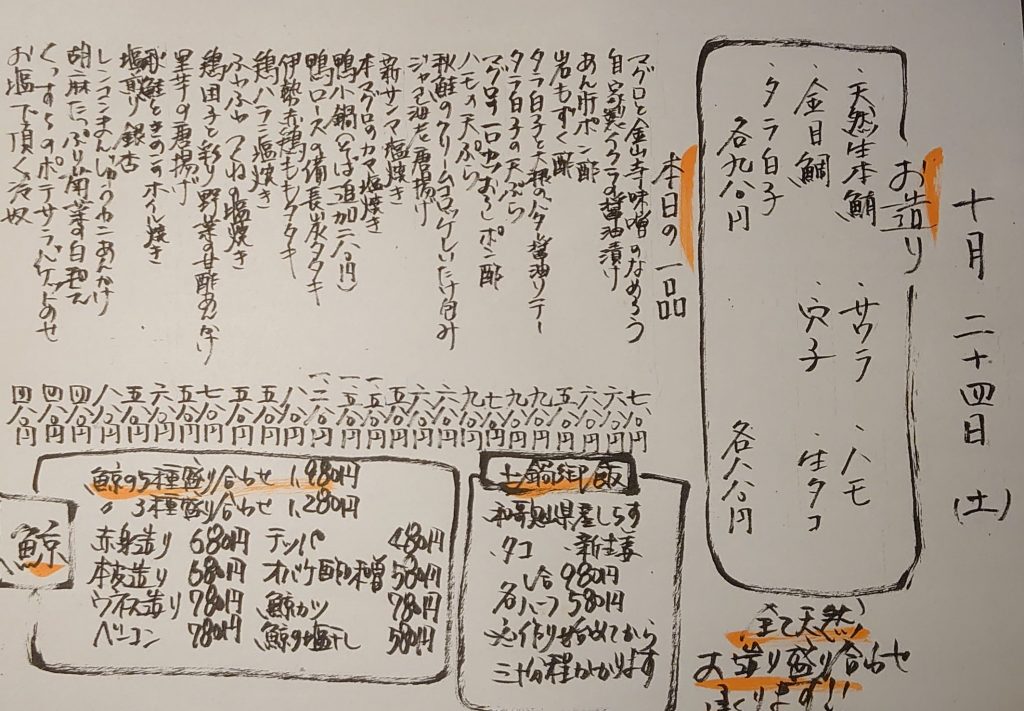 十月二十四日(土)
お造り
天然生本鮪 サワラ ハモ
金目鯛 穴子 生タコ
タラ白子
各九八〇円 各八八〇円
全て天然
お造り盛り合わせ
つくります!!
本日の一品
マグロと金山寺味噌のなめろう 七八〇円
自家製イクラの醤油漬け 六八〇円
あん肝ポン酢 六八〇円
岩もずく酢 五八〇円
タラ白子と大根のバター醤油ソテー 九八〇円
タラ白子の天ぷら 九八〇円
マグロの一口カツおろしポン酢 七八〇円
ハモの天ぷら 九八〇円
秋鮭のクリームコロッケしいたけ包み 六八〇円
ジャコ海老唐揚げ 六八〇円
新サンマ塩焼き
本マグロのカマ塩焼き
鴨小鍋(そば追加二八〇円)
鴨ロースの備長炭タタキ
伊勢赤鶏ももタタキ 八八〇円
鶏ハラミ塩焼き 五八〇円
ふわふわつくねの塩焼き 五八〇円
鶏団子と彩り野菜の甘酢あんかけ 七八〇円
里芋の唐揚げ 五八〇円
秋鮭ときのこのホイル焼き 六八〇円
塩煎り銀杏 五八〇円
レンコンまんじゅうのカニあんかけ 八八〇円
胡麻たっぷり南京の白和え 四八〇円
くんすものポテサラバゲット添え 四八〇円
お塩で頂く冷奴 四八〇円
土鍋御飯
和歌山県産しらす
タコ 新生姜
各一合 980円
各ハーフ 580円
※作り始めてから
三十分程かかります
鯨
鯨の5種盛り合わせ 1,980円
〃 3種盛り合わせ 1,280円
赤身造り 680円 テッパ 480円
本皮造り 680円 オバケ酢味噌 580円
ウネス造り 780円 鯨カツ 780円
ベーコン 780円 鯨の塩干し 580円